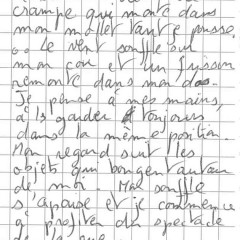 crampe qui monte dans
mon mollet tant pousse.
Le vent souffle sur
mon cou et un frisson
remonte dans mon dos.
Je pense à mes mains,
à les garder toujours
dans la même position.
Mon regard suit les
objets qui bougent autour
de moi. Mon souffle
s'apaise et je commence
à profiter du spectacle
de la rue